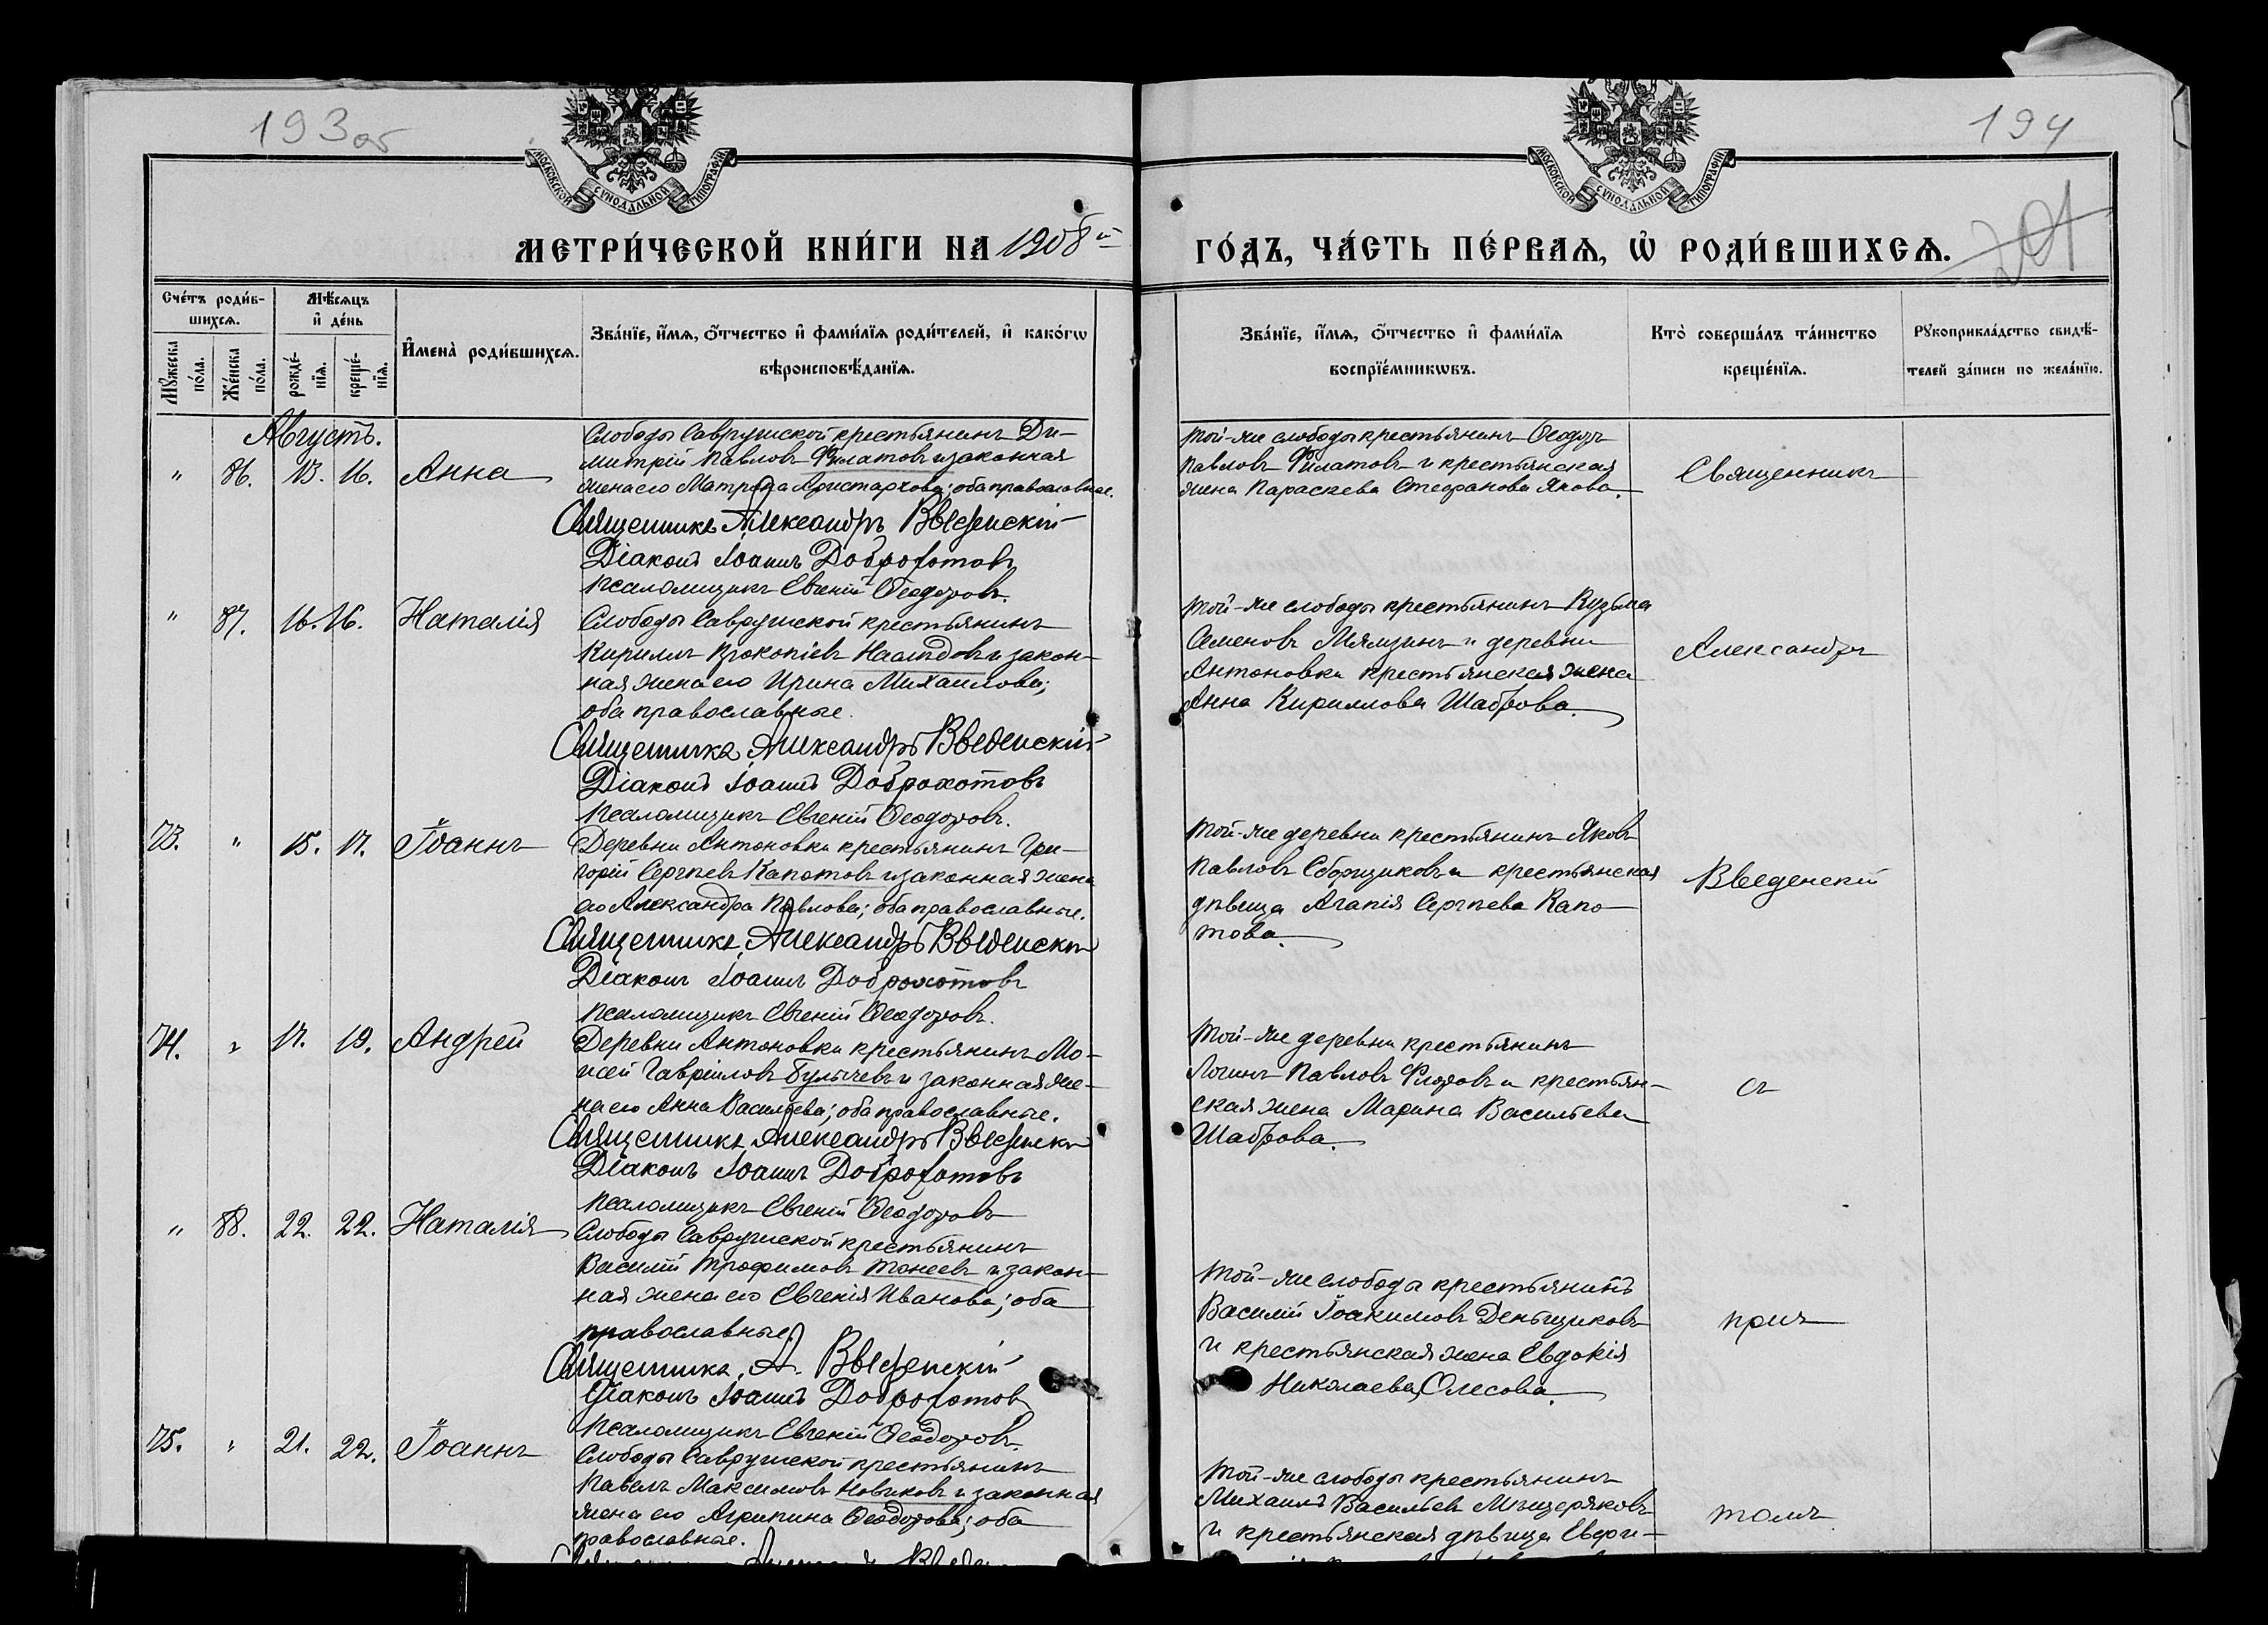 193об
194
201
МОСКОВСКОЙ СѴНОДАЛЬНОЙ ТИПОГРАФІИ.
МОСКОВСКОЙ СѴНОДАЛЬНОЙ ТИПОГРАФІИ.
МЕТРИ́ЧЕСКОЙ КНИ́ГИ НА 1908й
ГО́ДЪ, ЧА́СТЬ ПЕ́РВАѦ, Ѡ҆ РОДИ́ВШИХСѦ.
Сче́тъ роди́в-
шихсѧ.
Мѣ́сѧцъ
и҆ де́нь
Мꙋ́жеска
по́ла.
Же́нска
по́ла.
рожде́-
нїѧ.
креще́-
нїѧ.
И҆мена̀ роди́вшихсѧ.
Зва́нїе, и҆́мѧ, ѻ҆́тчество и҆ фами́лїѧ роди́телей, и҆ како́гѡ
вѣроисповѣ́данїѧ.
Зва́нїе, и҆́мѧ, ѻ҆́тчество и҆ фами́лїѧ
воспрїе́мникѡвъ.
Кто̀ соверша́лъ та́инство
креще́нїѧ.
Рꙋкоприкла́дство свидѣ́-
телей за́писи по жела́нїю.
Августъ.
" 86. 13. 16. Анна
Слободы Саврушской крестьянинъ Ди-
митрій Павловъ Филатовъ и законная
жена его Матрона Аристархова; оба православные.
Священникъ Александръ Введенскій
Діаконъ Іоаннъ Доброхотовъ
Псаломщикъ Евгеній Ѳеодоровъ.
Той-же слободы крестьянинъ Ѳеодоръ
Павловъ Филатовъ и крестьянская
жена Параскева Стефанова Якова.
Священникъ
" 87. 16. 16. Наталія
Слободы Саврушской крестьянинъ
Кириллъ Прокопіевъ Наслѣдовъ и закон-
ная жена его Ирина Михаилова;
оба православные.
Священникъ Александръ Введенскій
Діаконъ Іоаннъ Доброхотовъ
Псаломщикъ Евгеній Ѳеодоровъ.
Той-же слободы крестьянинъ Кузьма
Семеновъ Мямзинъ и деревни
Антоновки крестьянская жена
Анна Кириллова Шаброва.
Александръ
73. " 15. 17. Іоаннъ
Деревни Антоновки крестьянинъ Гри-
горій Сергѣевъ Капотовъ и законная жена
его Александра Павлова; оба православные.
Священникъ Александръ Введенскій
Діаконъ Іоаннъ Доброхотовъ
Псаломщикъ Евгеній Ѳеодоровъ.
Той-же деревни крестьянинъ Яковъ
Павловъ Сборщиковъ и крестьянская
дѣвица Агапія Сергѣева Капо-
това.
Введенскій
74. " 17. 19. Андрей
Деревни Антоновки крестьянинъ Мо-
исей Гавріиловъ Булычевъ и законная же-
на его Анна Васильева; оба православные.
Священникъ Александръ Введенскій
Діаконъ Іоаннъ Доброхотовъ
Псаломщикъ Евгеній Ѳеодоровъ
Той-же деревни крестьянинъ
Логинъ Павловъ Флоровъ и крестьян-
ская жена Марина Васильева
Шаброва.
съ
" 88. 22. 22. Наталія
Слободы Саврушской крестьянинъ
Василій Трофимовъ Тонеевъ и закон-
ная жена его Евгенія Иванова; оба
православные.
Священникъ А. Введенскій
Діаконъ Іоаннъ Доброхотовъ
Псаломщикъ Евгеній Ѳеодоровъ.
Той-же слободы крестьянинъ
Василій Іоакимовъ Деньщиковъ
и крестьянская жена Евдокія
Николаева Олесова.
прич
75. " 21. 22. Іоаннъ
Слободы Саврушской крестьянинъ
Павелъ Максимовъ Новиковъ и законная
жена его Агрипина Ѳеодорова; оба
православные.
Той-же слободы крестьянинъ
Михаилъ Васильевъ Мѣщеряковъ
и крестьянская дѣвица Евфи-
томъ